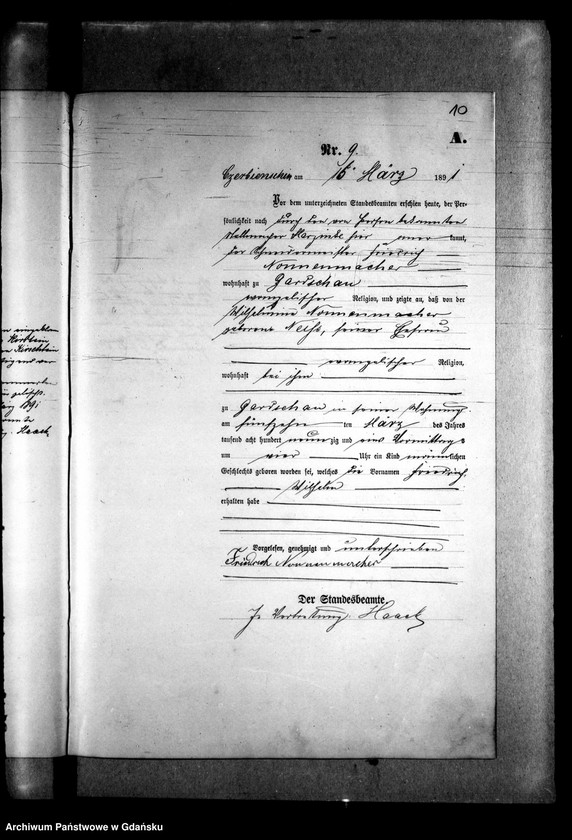 10
A.
Nr. 9.
Czerbienschin am 16. März 1891
Vor dem unterzeichneten Standesbeamten erschien heute, der Persönlichkeit nach
durch den von Person bekannten
Stellmacher hier anerkannt,
der Schneidermeister Friedrich
Nonnenmacher
wohnhaft zu Gardschau
evangelischer Religion, und zeigte an, daß von der
Wilhelmine Nonnenmacher
geborene seiner Ehefrau
evangelischer Religion,
wohnhaft bei ihm
zu Gardschau in seiner Wohnung
am fünfzehnten März des Jahres
tausend acht hundert neunzig und eins Vormittags
um vier Uhr ein Kind männlichen
Geschlechts geboren worden sei, welches die Vornamen Friedrich
Wilhelm
erhalten habe
Vorgelesen, genehmigt und unterschrieben
Friedrich Nonnenmacher
Der Standesbeamte.
In Vertretung. Haack
Archiwum Państwowe w Gdańsku